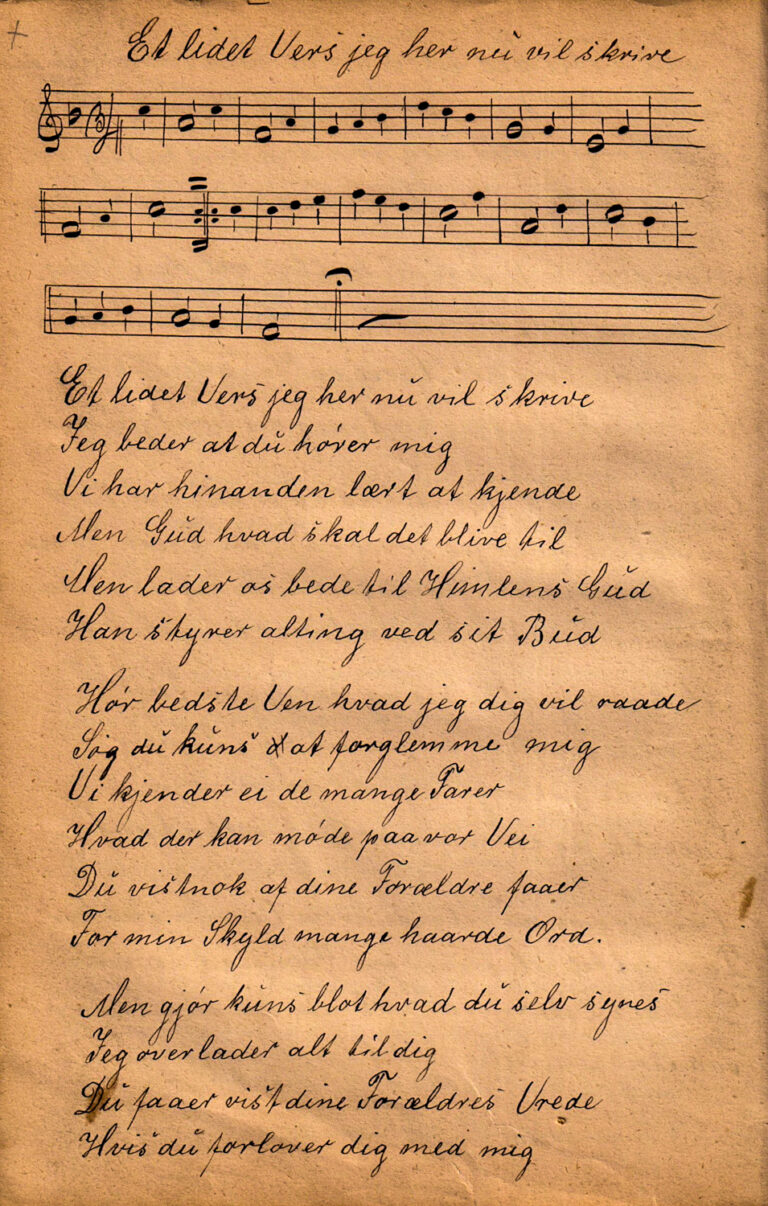 Et lidet Vers jeg her nu vil skrive
Et lidet Vers jeg her nu vil skrive
Jeg beder at du hører mig
Vi har hinanden lært at kjende
Men Gud hvad skal det blive til
Men lader os bede til Himlens Gud
Han styrer alting ved sit Bud
Hør bedste Ven hvad jeg dig vil raade
Søg du kuns at forglemme mig
Vi kjender ei de mange Farer
Hvad der kan møde paa vor Vei
Du vistnok af dine Forældre faaer
For min Skyld mange haarde Ord.
Men gjør kuns blot hvad du selv synes
Jeg overlader alt til dig
Du faaer vist dine Forældres Vrede
Hvis du forlover dig med mig